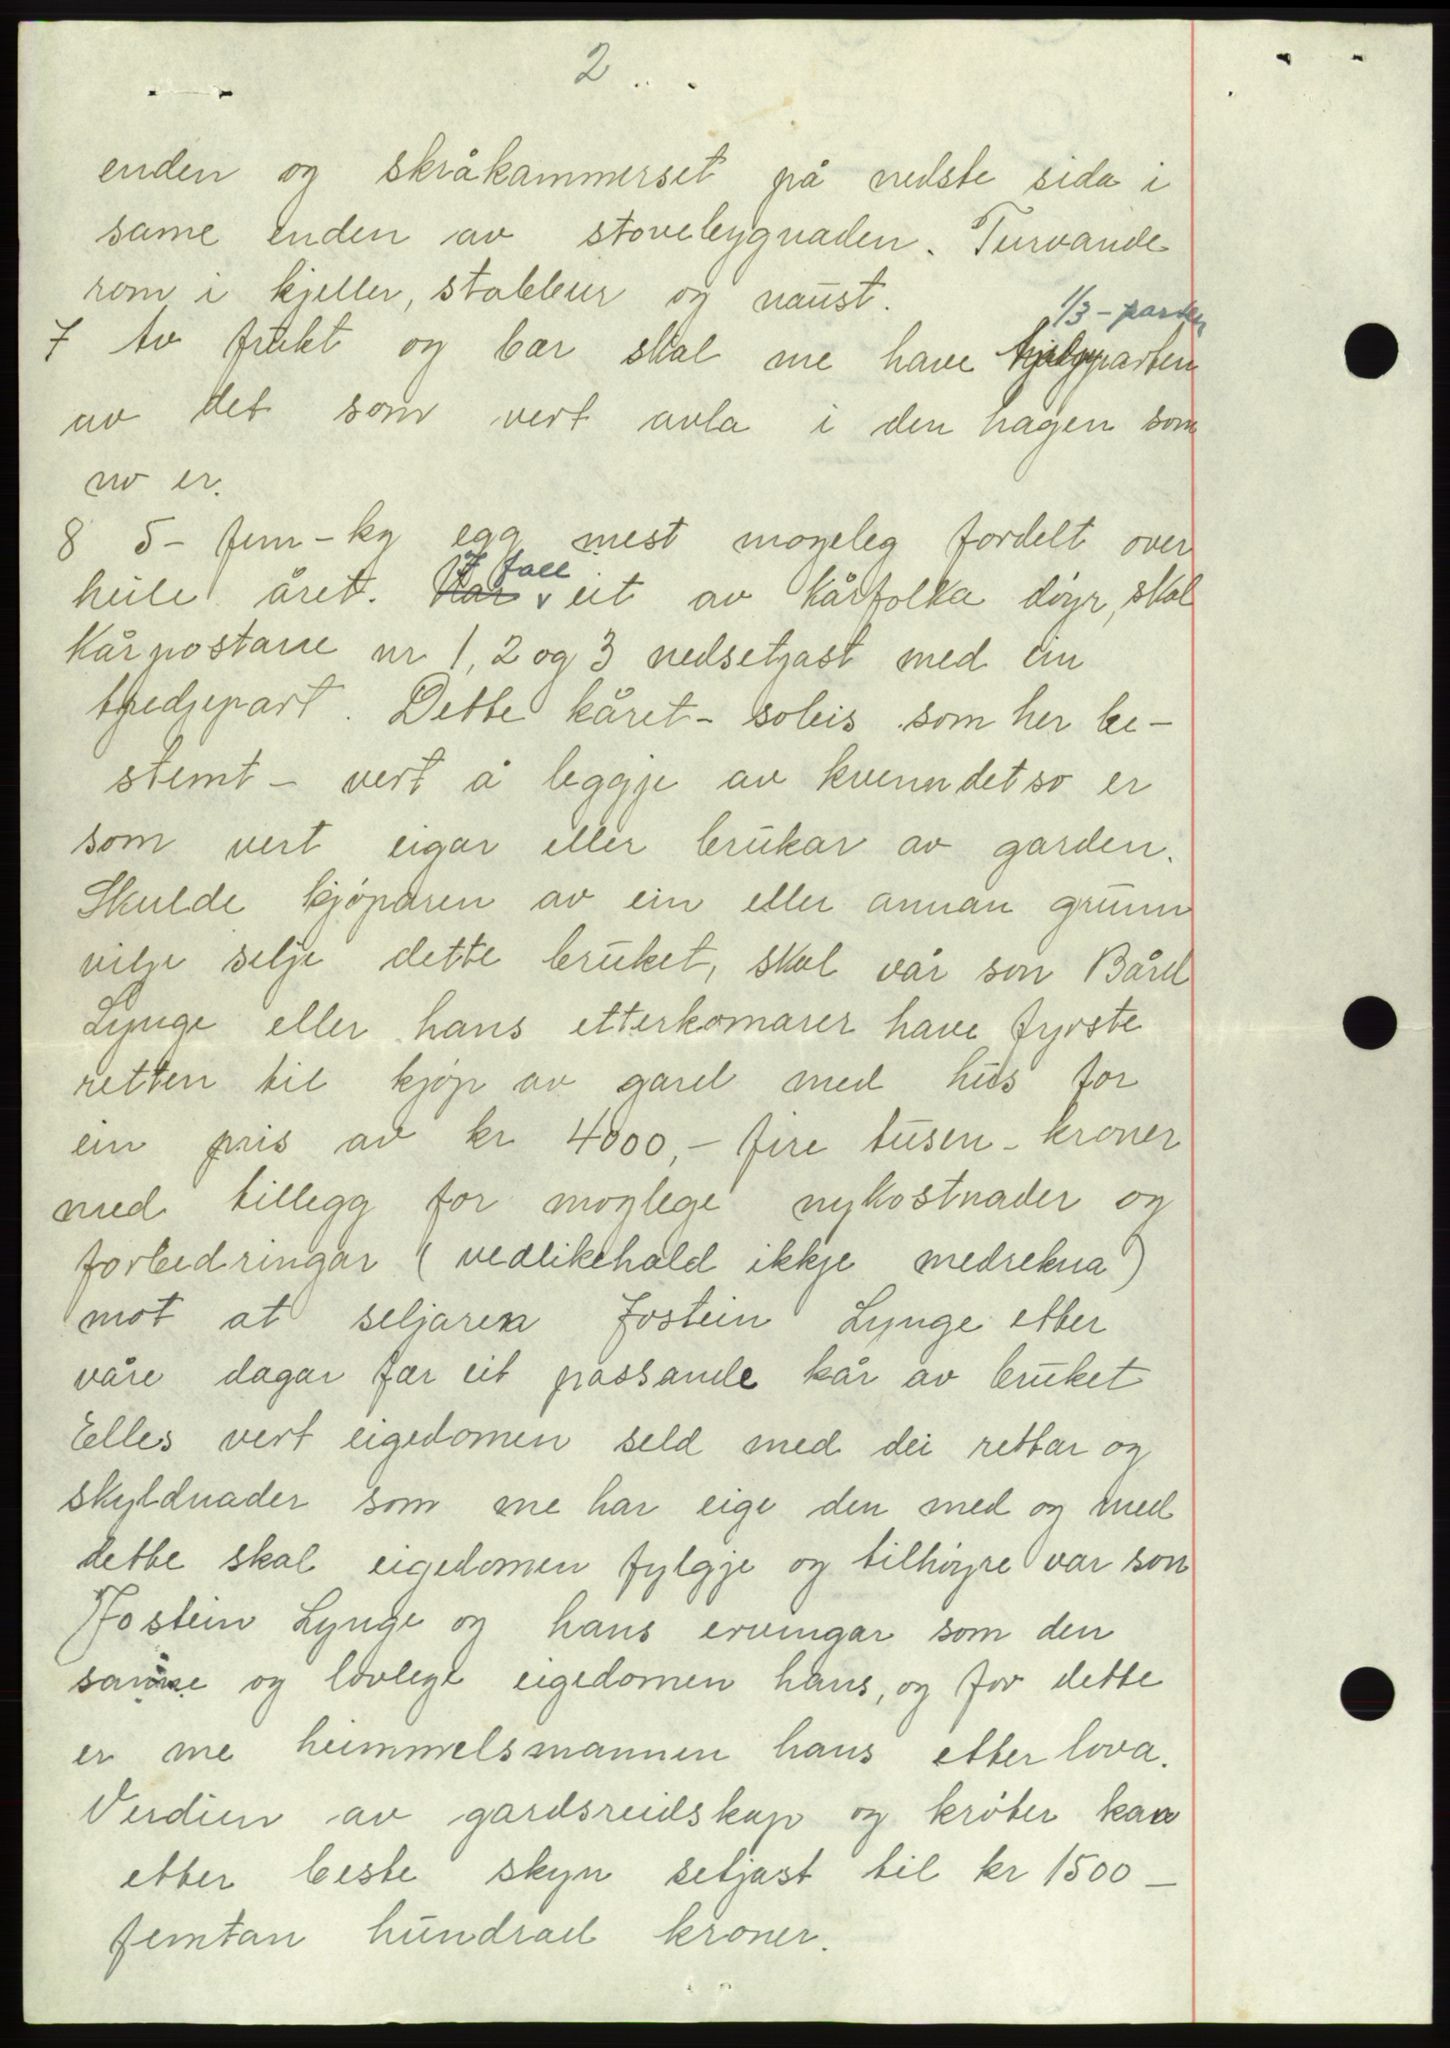 2
enden og skråkammerset på nedste sida i
same enden av stovebygnaden. Turvande
rom i kjeller, stabbur og naust.
1/3-parten
7 Av frukt og bær skal me have halvparten
av det som vert avla i den hagen som
no er.
8 5- fem-kg egg mest mogeleg fordelt over
I fall
heile året. Når eit av kårfolka døyr, skal
kårpostane nr 1, 2 og 3 nedsetjast med ein
tredjepart. Dette kåret- soleis som her be-
stemt- vert å leggje av kvenn det so er
som vert eigar eller brukar av garden.
Skulde kjøparen av ein eller annan grunn
vilje selje dette bruket, skal vår son Bård
Lynge eller hans etterkomarer have fyrste
retten til kjøp av gard med hus for
ein pris av kr 4000,- fire tusen- kroner
med tillegg for moglege nykostnader og
forbedringar (vedlikehald ikkje medrekna)
mot at seljaren Jostein Lynge etter
våre dagar fær eit passande kår av bruket
Elles vert eigedomen seld med dei rettar og
skyldnader som me har eige den med og med
dette skal eigedomen fylgje og tilhøyre vår son
Jostein Lynge og hans ervingar som den
sanne og lovlege eigedomen hans, og for dette
er me heimmelsmannen hans etter lova.
Verdien av gardsreidskap og krøter kan
etter beste skyn setjast til kr 1500 -
femtan hundrad kroner.